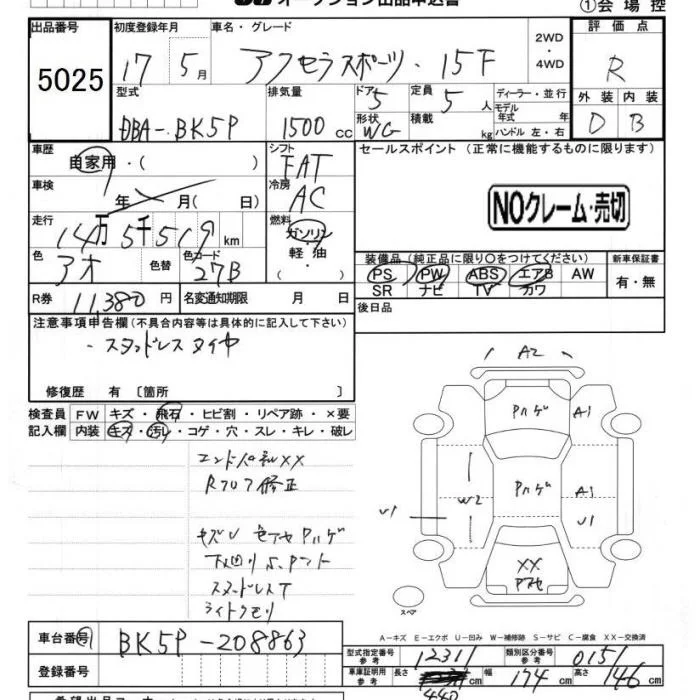 オークション出品申込書
①会場控
出品番号 初度登録年月 車名・グレード 2WD・4WD 評価点
5025 17 5月 アクセラスポーツ・15F R
型式 排気量 ドア 5 定員 5人 ディーラー・並行 外装 内装
DBA-BK5P 1500cc 形状 WG 積載 kg モデル年式 年 ハンドル 左・右 D B
車歴 シフト セールスポイント (正常に機能するものに限ります)
自家用・( ) FAT
車検 冷房
年 月( 日) AC NOクレーム・売切
走行 燃料
14万5千519km ガソリン・軽油・( )
色 色替 色コード 装備品(純正品に限り○をつけてください) 新車保証書
アオ 27B PS PW ABS エアB AW 有・無
SR ナビ TV カワ
R券 11,380円 名変通知期限 月 日 後日品
注意事項申告欄(不具合内容等は具体的に記入して下さい)
・スタッドレスタイヤ
修復歴 有 〔箇所 〕
検査員 FW キズ・飛石・ヒビ割・リペア跡・×要
記入欄 内装 キズ・汚レ・コゲ・穴・スレ・キレ・破レ
XX
Rフロア修正
キズU 色アセ Pハゲ
下回りS、Pナント
スタッドレスT
ライトクモリ
A2
Pハゲ A1
W2 Pハゲ A1
U1 U1
XX
Pアセ
スペア
A-キズ E-エクボ U-凹み W-補修跡 S-サビ C-腐食 XX-交換済
車台番号 BK5P-208863
型式指定番号 参考 12311 類別区分番号 参考 0151
登録番号
車庫証明用 参考 長さ 440 幅 174cm 高さ 146cm
希望出品コーナー